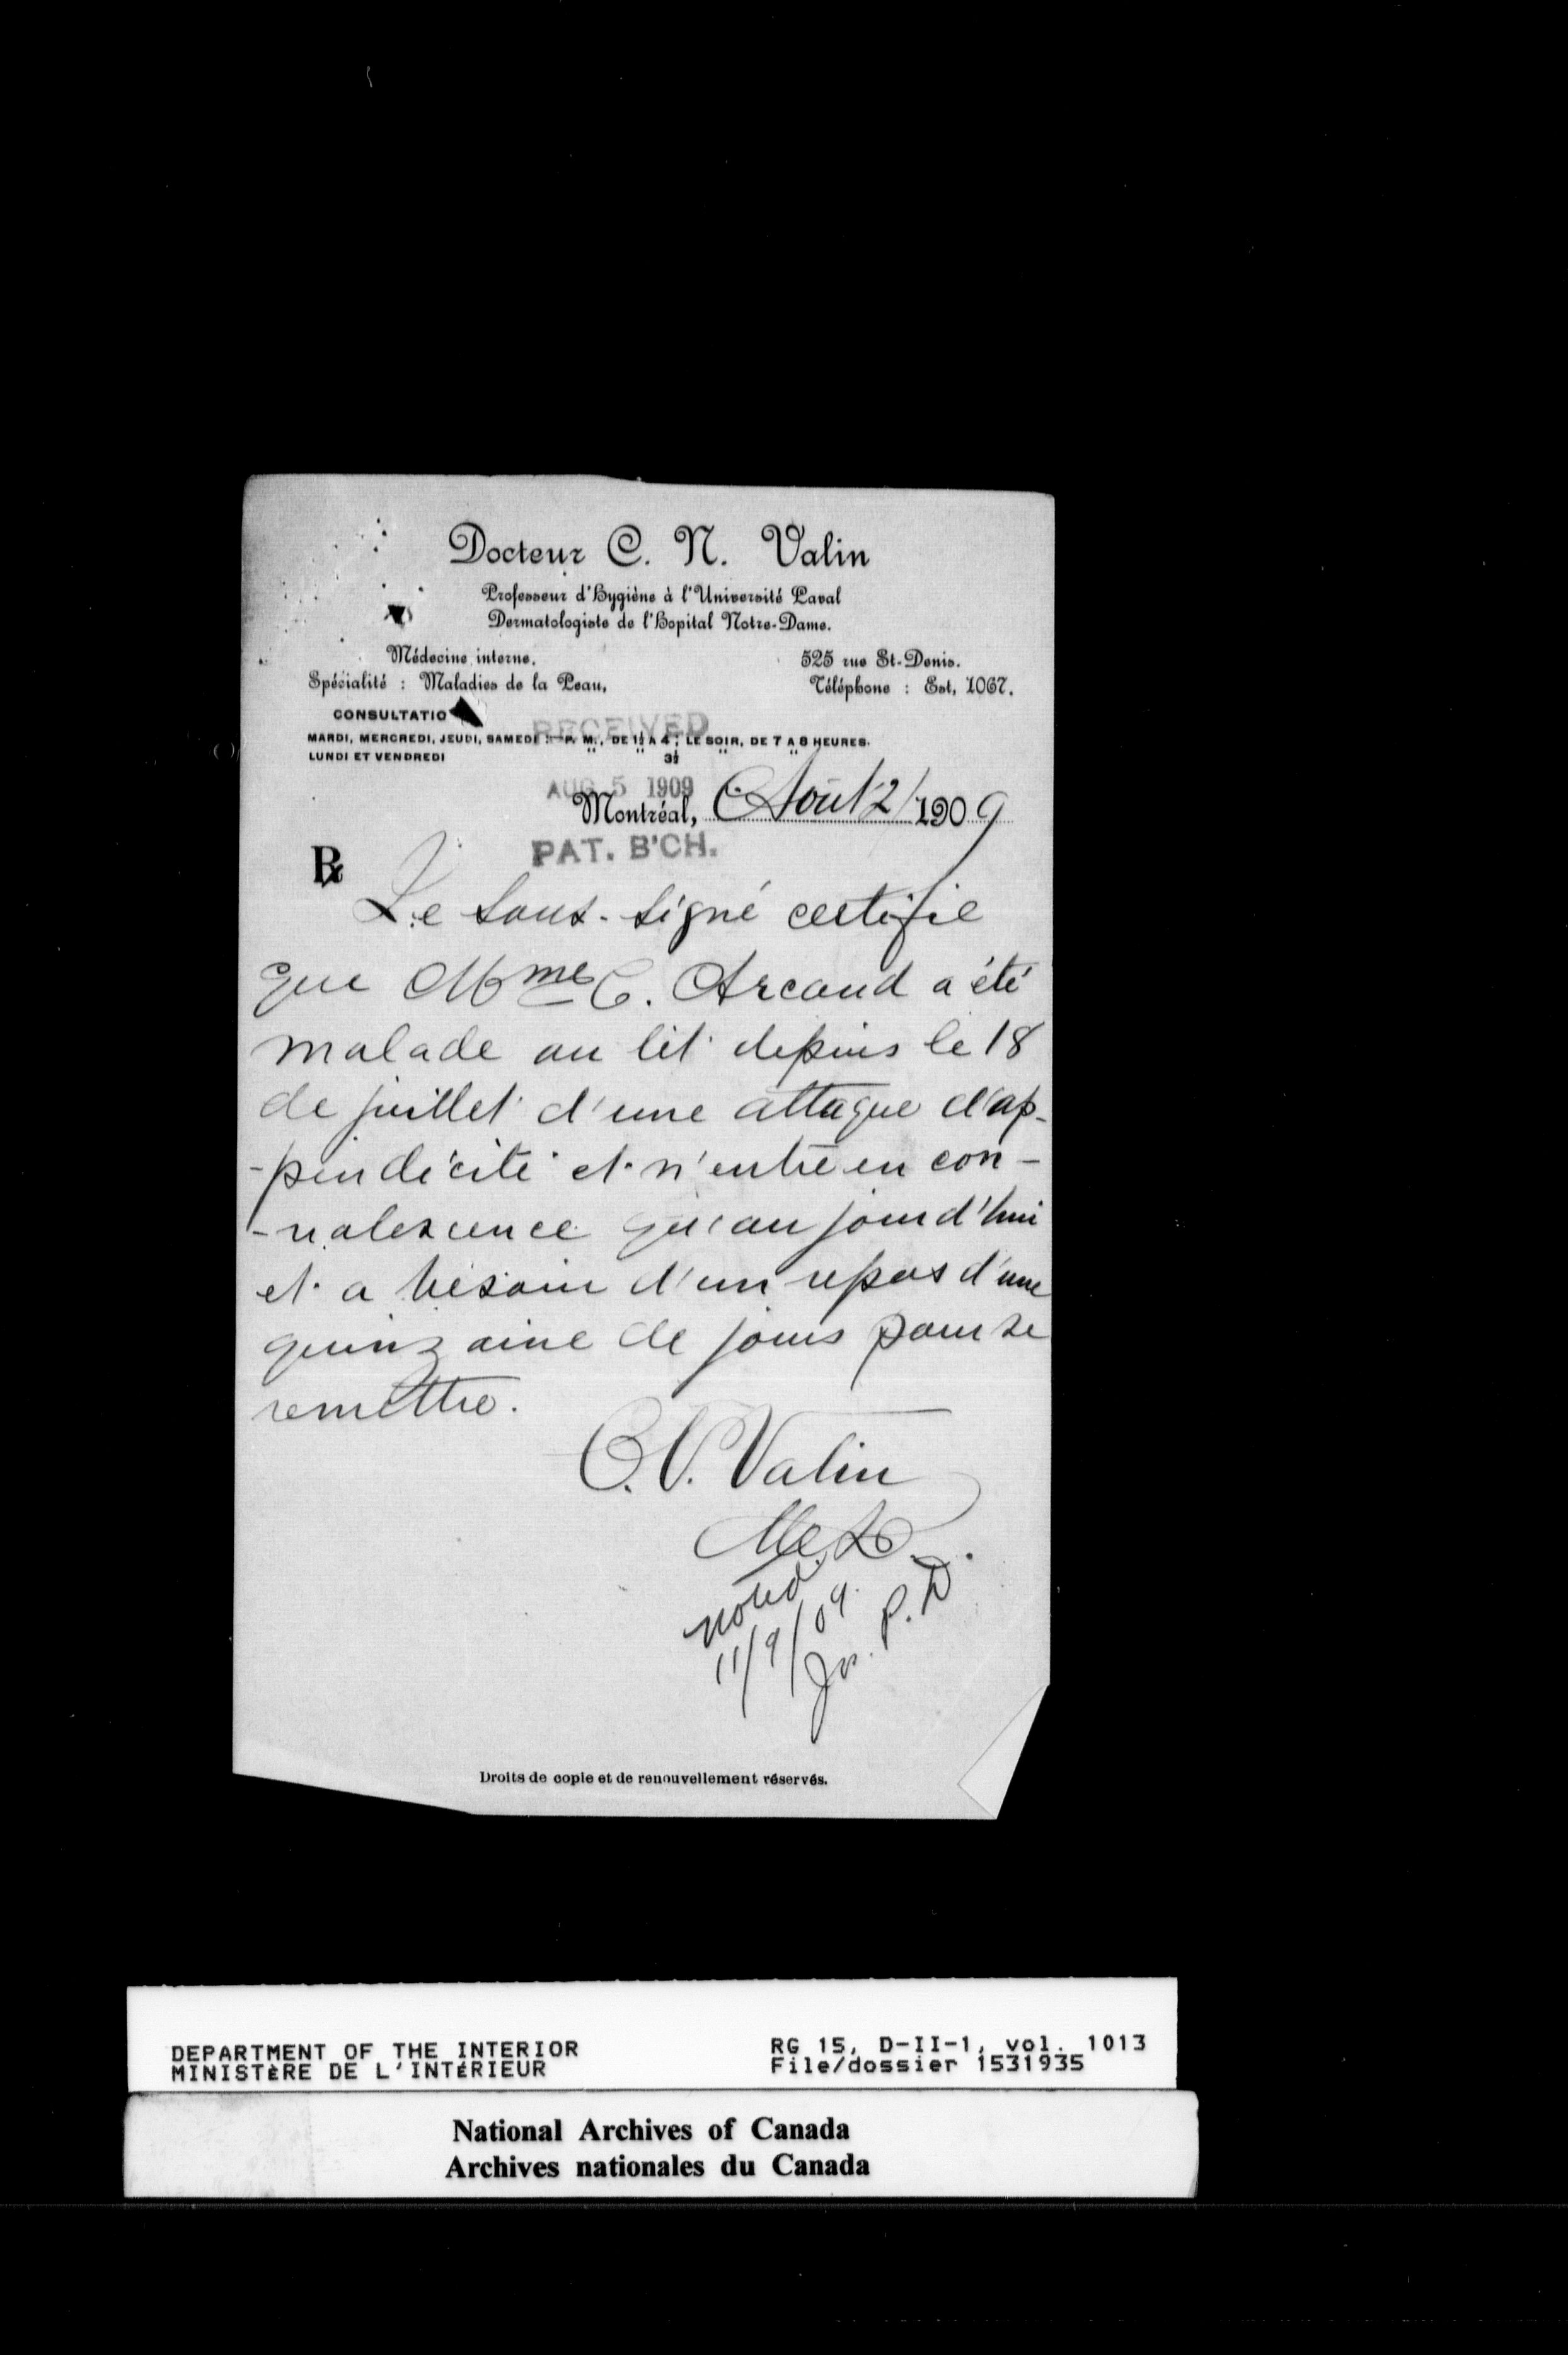 Docteur C. N. Valin
Professeur d'Hygiène à l'Université Laval
Dermatologiste de l'Hopital Notre-Dame.
Médecine interne.
Spécialité : Maladies de la Peau,
525 rue St-Denis.
Téléphone : Est, 1067.
CONSULTATIO
RECEIVED
MARDI, MERCREDI, JEUDI, SAMEDI :—P. M., DE 1½ A 4 ; LE SOIR, DE 7 A 8 HEURES.
LUNDI ET VENDREDI " " 3½ " "
AUG 5 1909
Montréal, Aout 2/1909
PAT. B'CH.
℞
Le sous-signé certifie
que Mme C. Arcand a été
malade au lit depuis le 18
de juillet d'une attaque d'ap-
-pendicite et n'entre en con-
-valescence qu'aujourd'hui
et a besoin d'un repos d'une
quinzaine de jours pour se
remettre.
C.N. Valin
noted
11/9/09.
P.D
Droits de copie et de renouvellement réservés.
DEPARTMENT OF THE INTERIOR
MINISTÈRE DE L'INTÉRIEUR
RG 15, D-II-1, vol. 1013
File/dossier 1531935
National Archives of Canada
Archives nationales du Canada